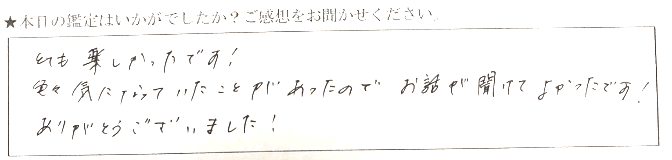 ★本日の鑑定はいかがでしたか？ご感想をお聞かせください。
とても楽しかったです！
色々気になっていたことがあったので お話が聞けてよかったです！
ありがとうございました！